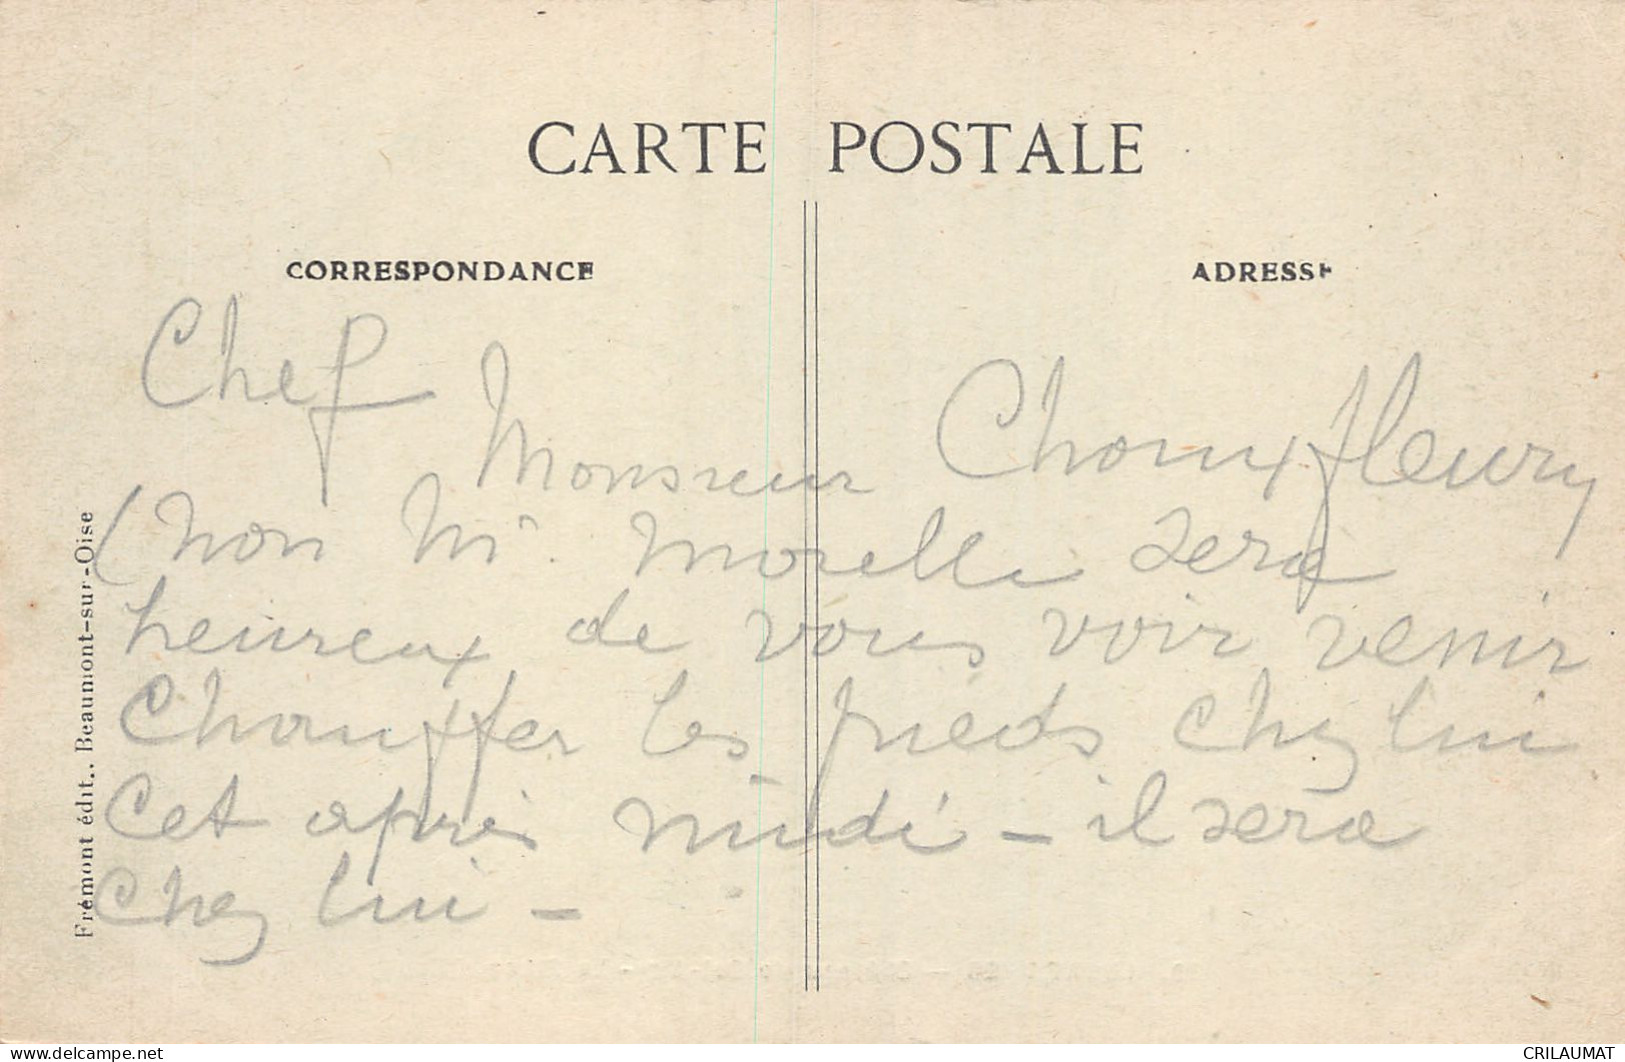 CARTE POSTALE
CORRESPONDANCE
ADRESSE
Chef
Monsieur Chomxfleury
(non M. Morelle sera
heureux de vous voir venir
Chauffer les pieds chez lui
Cet après midi – il sera
Chez lui –
Frémont édit.. Beaumont-sur-Oise
www.delcampe.net
CRILAUMAT